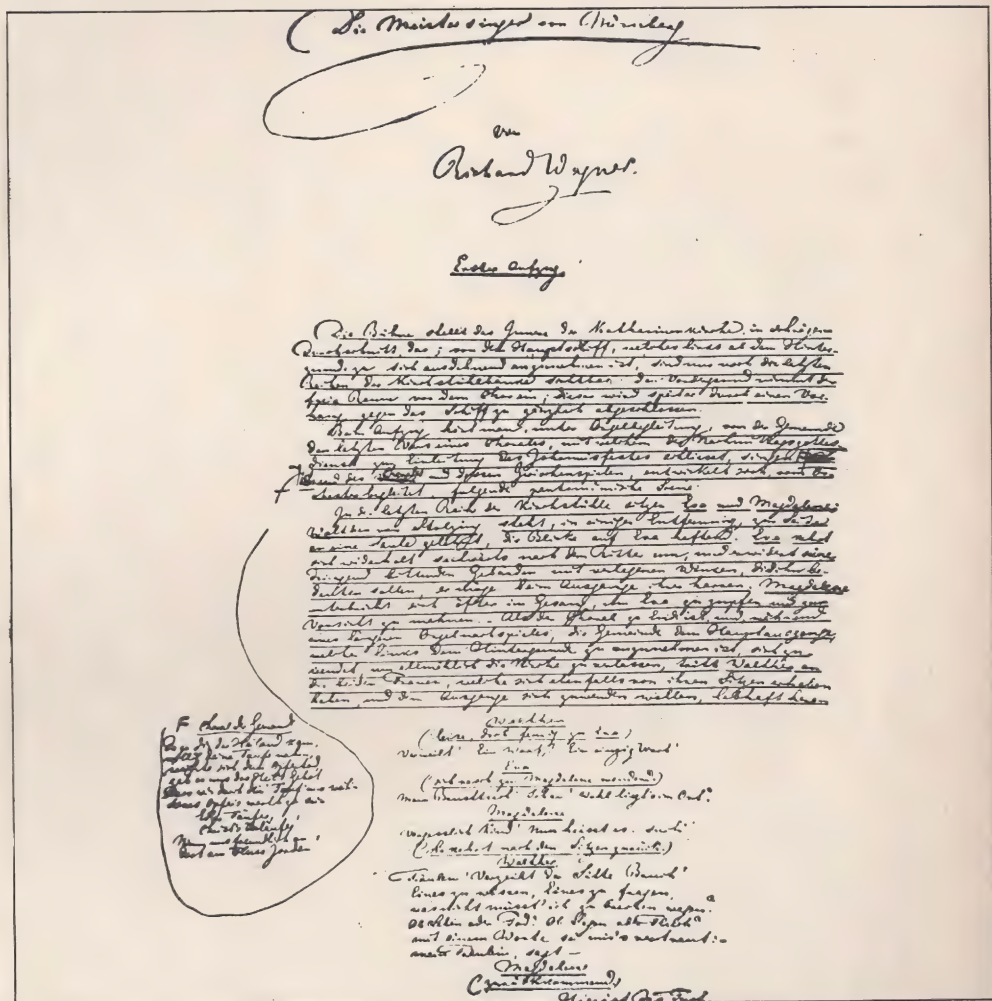 Die Meistersinger von Nürnberg
von
Richard Wagner.
Erster Aufzug.
Die Bühne stellt das Innere der Katharinenkirche, in schrägem
Durchschnitt, dar; von dem Hauptschiff, welches links ab dem Hinter-
grunde zu sich ausdehnend anzunehmen ist, sind nur noch die letzten
Reihen der Kirchstühlbänke sichtbar: den Vordergrund nimmt der
freie Raum vor dem Chor ein; dieser wird später durch einen Vor-
hang gegen das Schiff zu gänzlich abgeschlossen.
Beim Aufzug hört man, unter Orgelbegleitung, von der Gemeinde
den letzten Vers eines Chorales, mit welchem der Nachmittagsgottes-
dienst zur Einleitung des Johannisfestes schliesst, singen.
des und dessen Zwischenspielen, entwickelt sich, vom Or-
chester begleitet, folgende pantomimische Scene.
In der letzten Reihe der Kirchstühle sitzen Eva und Magdalene;
Walther von Stolzing steht, in einiger Entfernung, zur Seite
an eine Säule gelehnt, die Blicke auf Eva heftend. Eva kehrt
sich wiederholt seitwärts nach dem Ritter um, und erwidert seine
dringend bittenden Gebärden mit verlegenen Winken,
Magdalene
unterbricht sich öfter im Gesang, um Eva zu zupfen und zur
Vorsicht zu mahnen. Als der Choral zu Ende ist, und, während
eines längeren Orgelnachspieles, die Gemeinde dem Hauptausgange,
welcher links dem Hintergrunde zu anzunehmen ist, sich zu
wendet, um allmählich die Kirche zu verlassen, tritt Walther an
die beiden Frauen, welche sich ebenfalls von ihren Sitzen erhoben
haben, und dem Ausgange sich zuwenden wollen, lebhaft heran
F Choral der Gemeinde
Da zu dir der Heiland kam,
willig deine Taufe nahm,
weihte sich dem Opfertod
gab er uns des Heil's Gebot
dass wir durch dein' Tauf' uns weih'n
seines Opfers werth zu sein
Edler Täufer,
Christ's Vorläufer,
Nimm uns freundlich an
dort am Fluss Jordan
Walther
(leise, doch feurig zu Eva)
Verweilt! Ein Wort! Ein einzig Wort!
Eva
(sich rasch zu Magdalene wendend.)
Mein Brusttuch! Schau! Wohl liegt's im Ort?
Magdalene
Vergesslich Kind! Nun heisst es: such'!
(Sie kehrt nach den Sitzen zurück.)
Walther
Fräulein! Verzeiht der Sitte Bruch!
Eines zu wissen, Eines zu fragen,
was nicht müsst' ich zu brechen wagen?
Ob Leben oder Tod? Ob Segen oder Fluch?
mit einem Worte sei mir's vertraut:
mein Fräulein, sagt —
Magdalene
(zurückkommend)
Hier ist das Tuch.